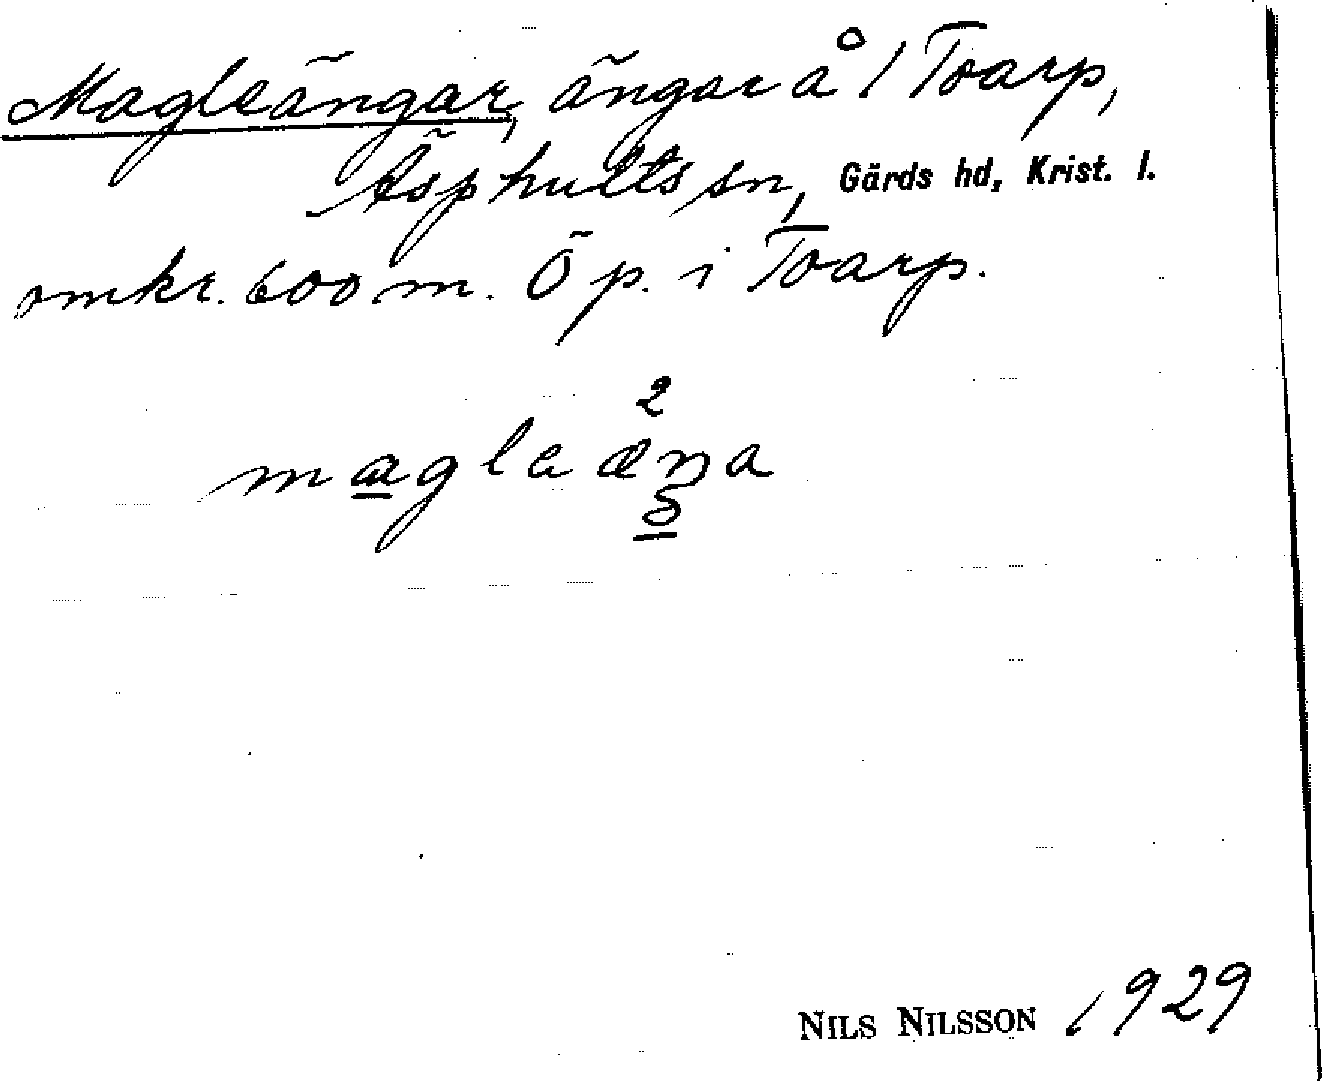 Magleängar, ängar å 1 Toarp,
Äsphults sn, Gärds hd, Krist. l.
omkr. 600 m. Ö p. i Toarp.
2
NILS NILSSON 1929